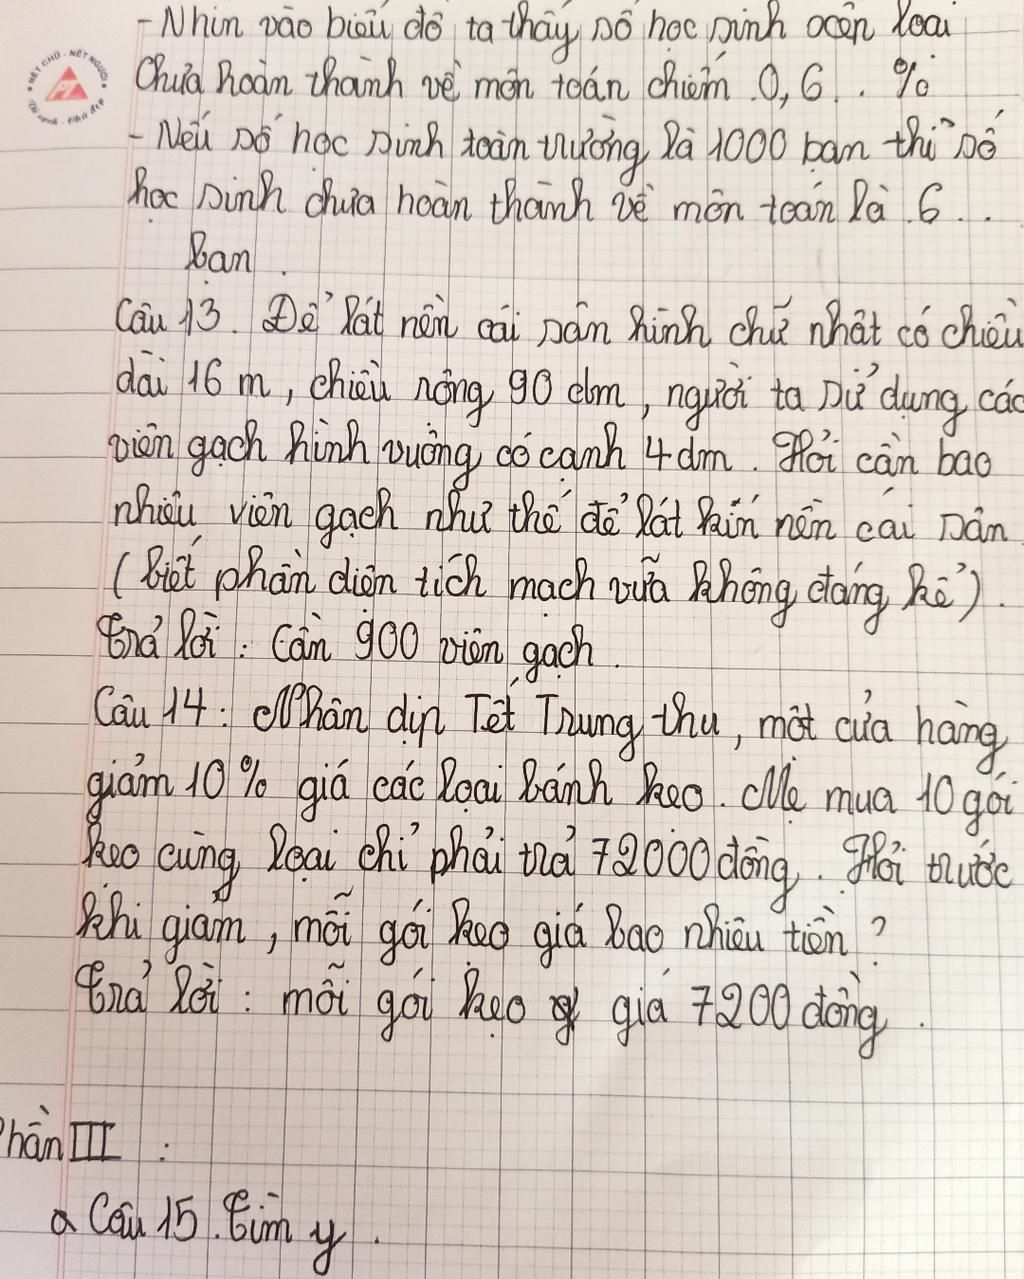 - Nhìn vào biểu đồ ta thấy số học sinh xếp loại
Chưa hoàn thành về môn toán chiếm .0,6.. %
- Nếu số học sinh toàn trường là 1000 bạn thì số
học sinh chưa hoàn thành về môn toán là .6...
bạn.
Câu 13. Để lát nền cái sân hình chữ nhật có chiều
dài 16 m, chiều rộng 90 dm, người ta sử dụng các
viên gạch hình vuông có cạnh 4dm. Hỏi cần bao
nhiêu viên gạch như thế để lát kín nền cái sân
(biết phần diện tích mạch vữa không đáng kể).
Trả lời: Cần 900 viên gạch.
Câu 14: Nhân dịp Tết Trung thu, một cửa hàng
giảm 10% giá các loại bánh kẹo. Mẹ mua 10 gói
kẹo cùng loại chỉ phải trả 72000 đồng. Hỏi trước
khi giảm, mỗi gói kẹo giá bao nhiêu tiền?
Trả lời: mỗi gói kẹo giá 7200 đồng.
Phần III:
Câu 15. Tìm y.
NÉT CHỮ - NẾT NGƯỜI